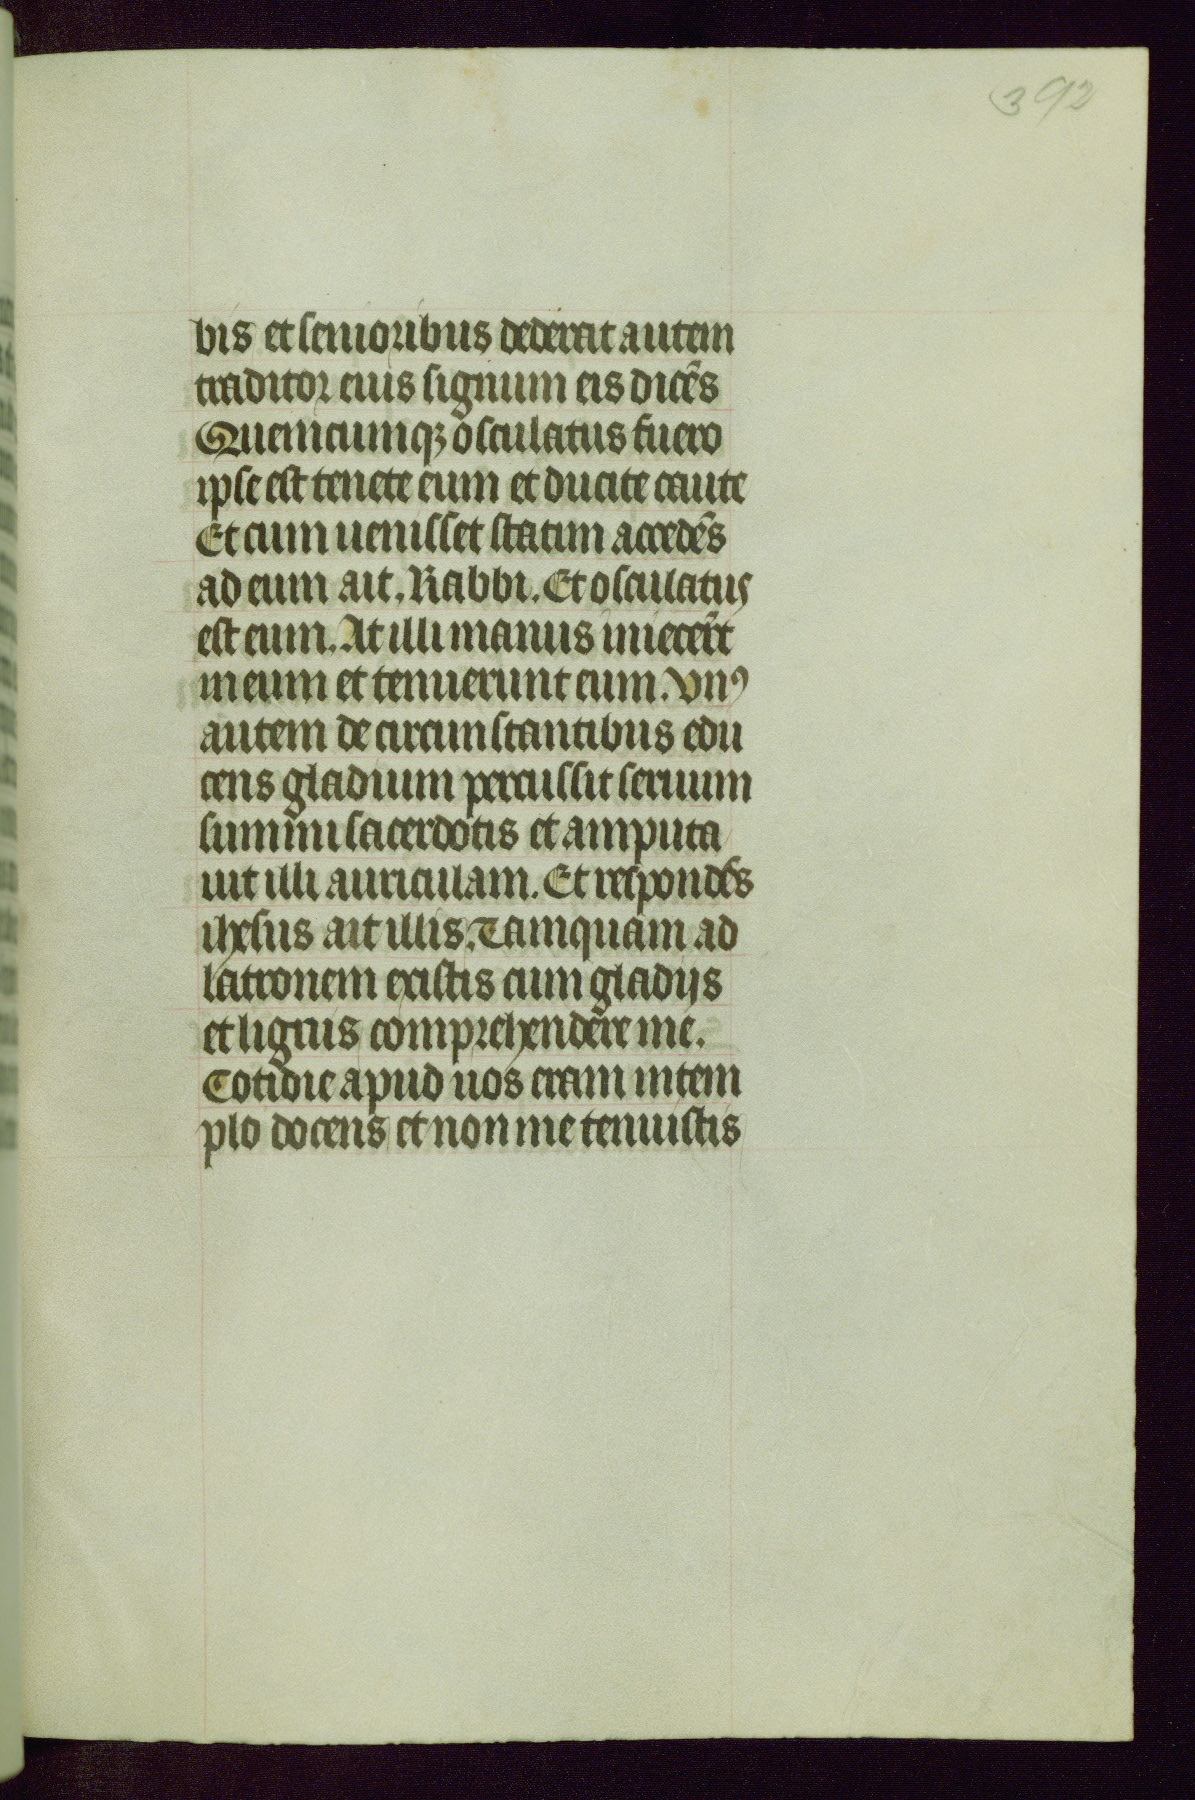 392
bis et senioribus dederat autem
traditor eius signum eis dicẽs
Quemcumqꝫ osculatus fuero
ipse est tenete eum et ducite caute
Et cum uenisset statim accedẽs
ad eum ait. Rabbi. Et osculatus
est eum. At illi manus iniecer̃t
in eum et tenuerunt eum. Vnꝰ
autem de circumstantibus edu
cens gladium percussit seruum
summi sacerdotis et amputa
uit illi auriculam. Et respondẽs
ihesus ait illis. Tamquam ad
latronem existis cum gladijs
et lignis comprehendere me.
Cotidie apud uos eram in tem
plo docens et non me tenuistis